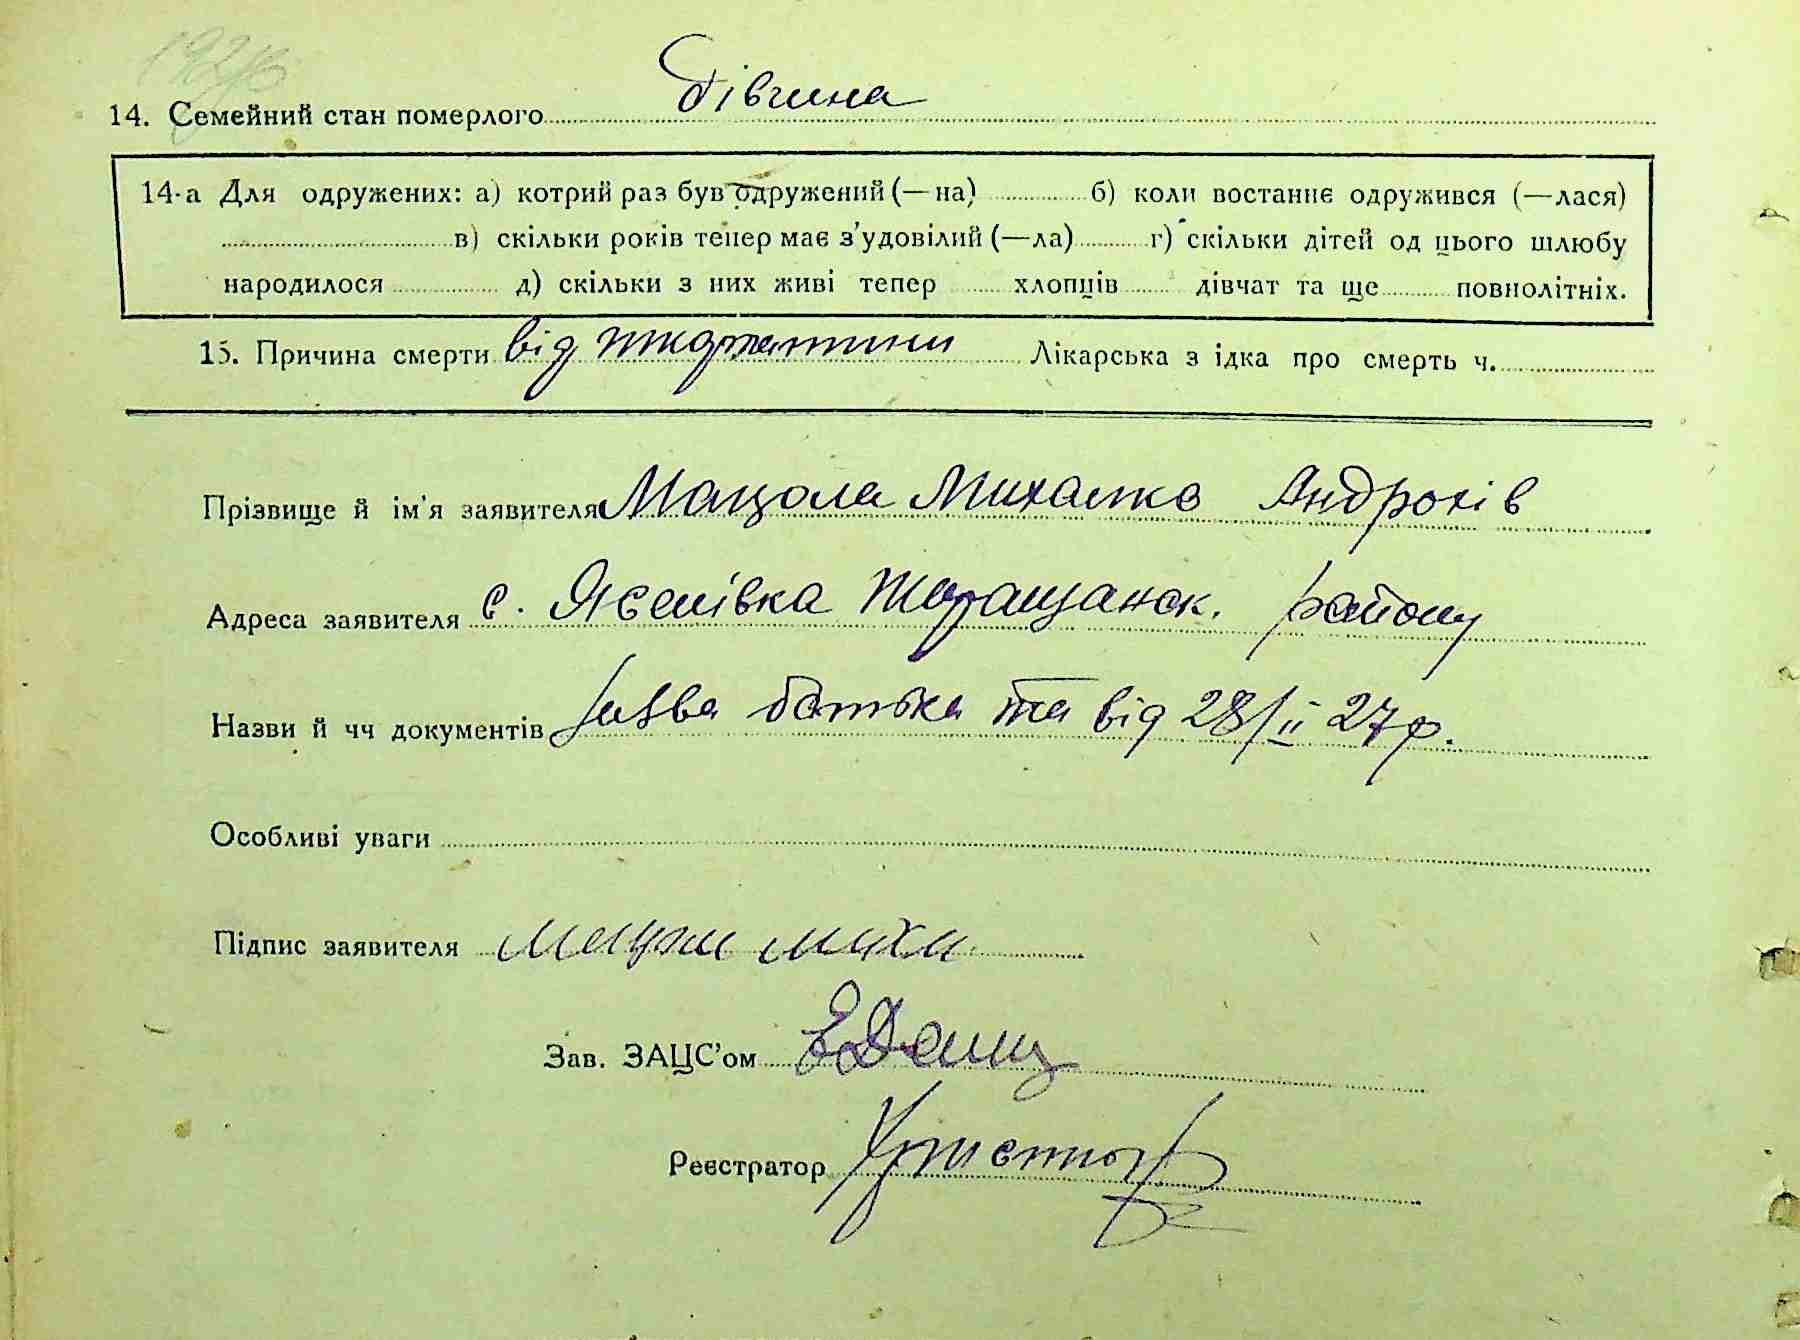 192 р
14. Семейний стан померлого дівчина
14-а Для одружених: а) котрий раз був одружений (—на) б) коли востаннє одружився (—лася)
в) скільки років тепер має з’удовілий (—ла) г) скільки дітей од цього шлюбу
народилося д) скільки з них живі тепер хлопців дівчат та ще повнолітніх.
15. Причина смерти від Лікарська з ідка про смерть ч.
Прізвище й ім’я заявителя Мацола Михалко Андрохів
Адреса заявителя с. Яселівка Таращанск. району
Назви й чч документів заява батька та від 28/II 27 р.
Особливі уваги
Підпис заявителя
Зав. ЗАЦС’ом
Реєстратор